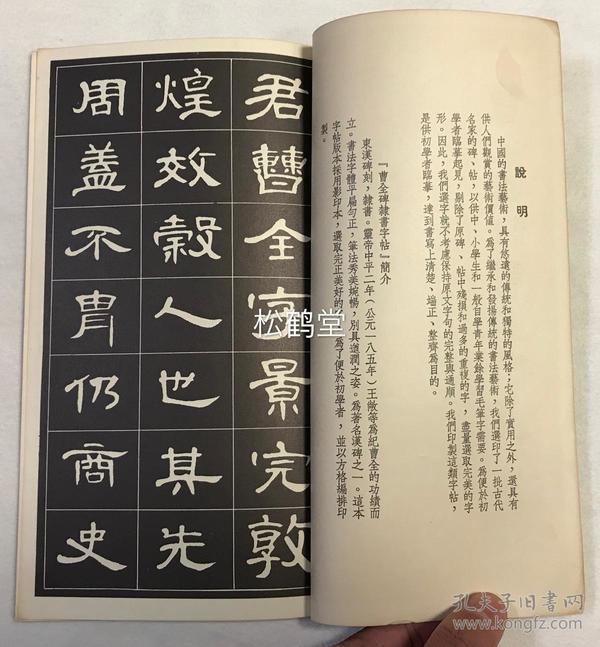 說明
中國的書法藝術，具有悠遠的傳統和獨特的風格；它除了實用之外，還具有
供人們觀賞的藝術價值。爲了繼承和發揚傳統的書法藝術，我們選印了一批古代
名家的碑、帖，以供中、小學生和一般自學青年業餘學習毛筆字需要。爲便於初
學者臨摹起見，剔除了原碑、帖中殘損和過多的重複的字，盡量選取完美的字
形。因此，我們選字就不考慮保持原文字句的完整與通順。我們印製這類字帖，
是供初學者臨摹，達到書寫上清楚、端正、整齊爲目的。
『曹全碑隸書字帖』簡介
東漢碑刻，隸書。靈帝中平二年（公元一八五年）王敞等爲紀曹全的功績而
立。書法字體平扁勻正，筆法秀美婉暢，別具遒潤之姿。爲著名漢碑之一。這本
字帖版本採用影印本，選取完正美好的 爲了便於初學者，並以方格編排印
製。
君曹全字景完敦
煌效穀人也其先
周蓋不胄仍商史
松鹤堂
孔夫子旧书网
www.kongfz.com